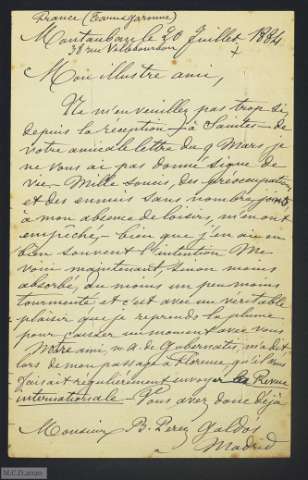 France (Tarn & Garonne)
Montauban le 20 Juillet 1884
38 rue Villebourbon
Mon illustre ami,
Ne m'en veuillez pas trop si,
depuis la réception – à Saintes – de
votre amicale lettre du 9 Mars je
ne vous ai pas donné signe de
vie – Mille soucis, des préoccupations
et des ennuis sans nombre, joints
à mon absence de loisirs, m'en ont
empêché, – bien que j'en aie eu
bien souvent l'intention. Me
voici maintenant, sinon moins
absorbé, du moins un peu moins
tourmenté et c'est avec un véritable
plaisir que je reprends la plume
pour causer un moment avec vous
Notre ami, M. A. de Gubernatis, m'a dit,
lors de mon passage à Florence, qu'il vous
faisait régulièrement envoyer la Revue
internationale – Vous avez donc déjà
Monsieur B. Perez Galdos
à Madrid
M.C.D. 2020